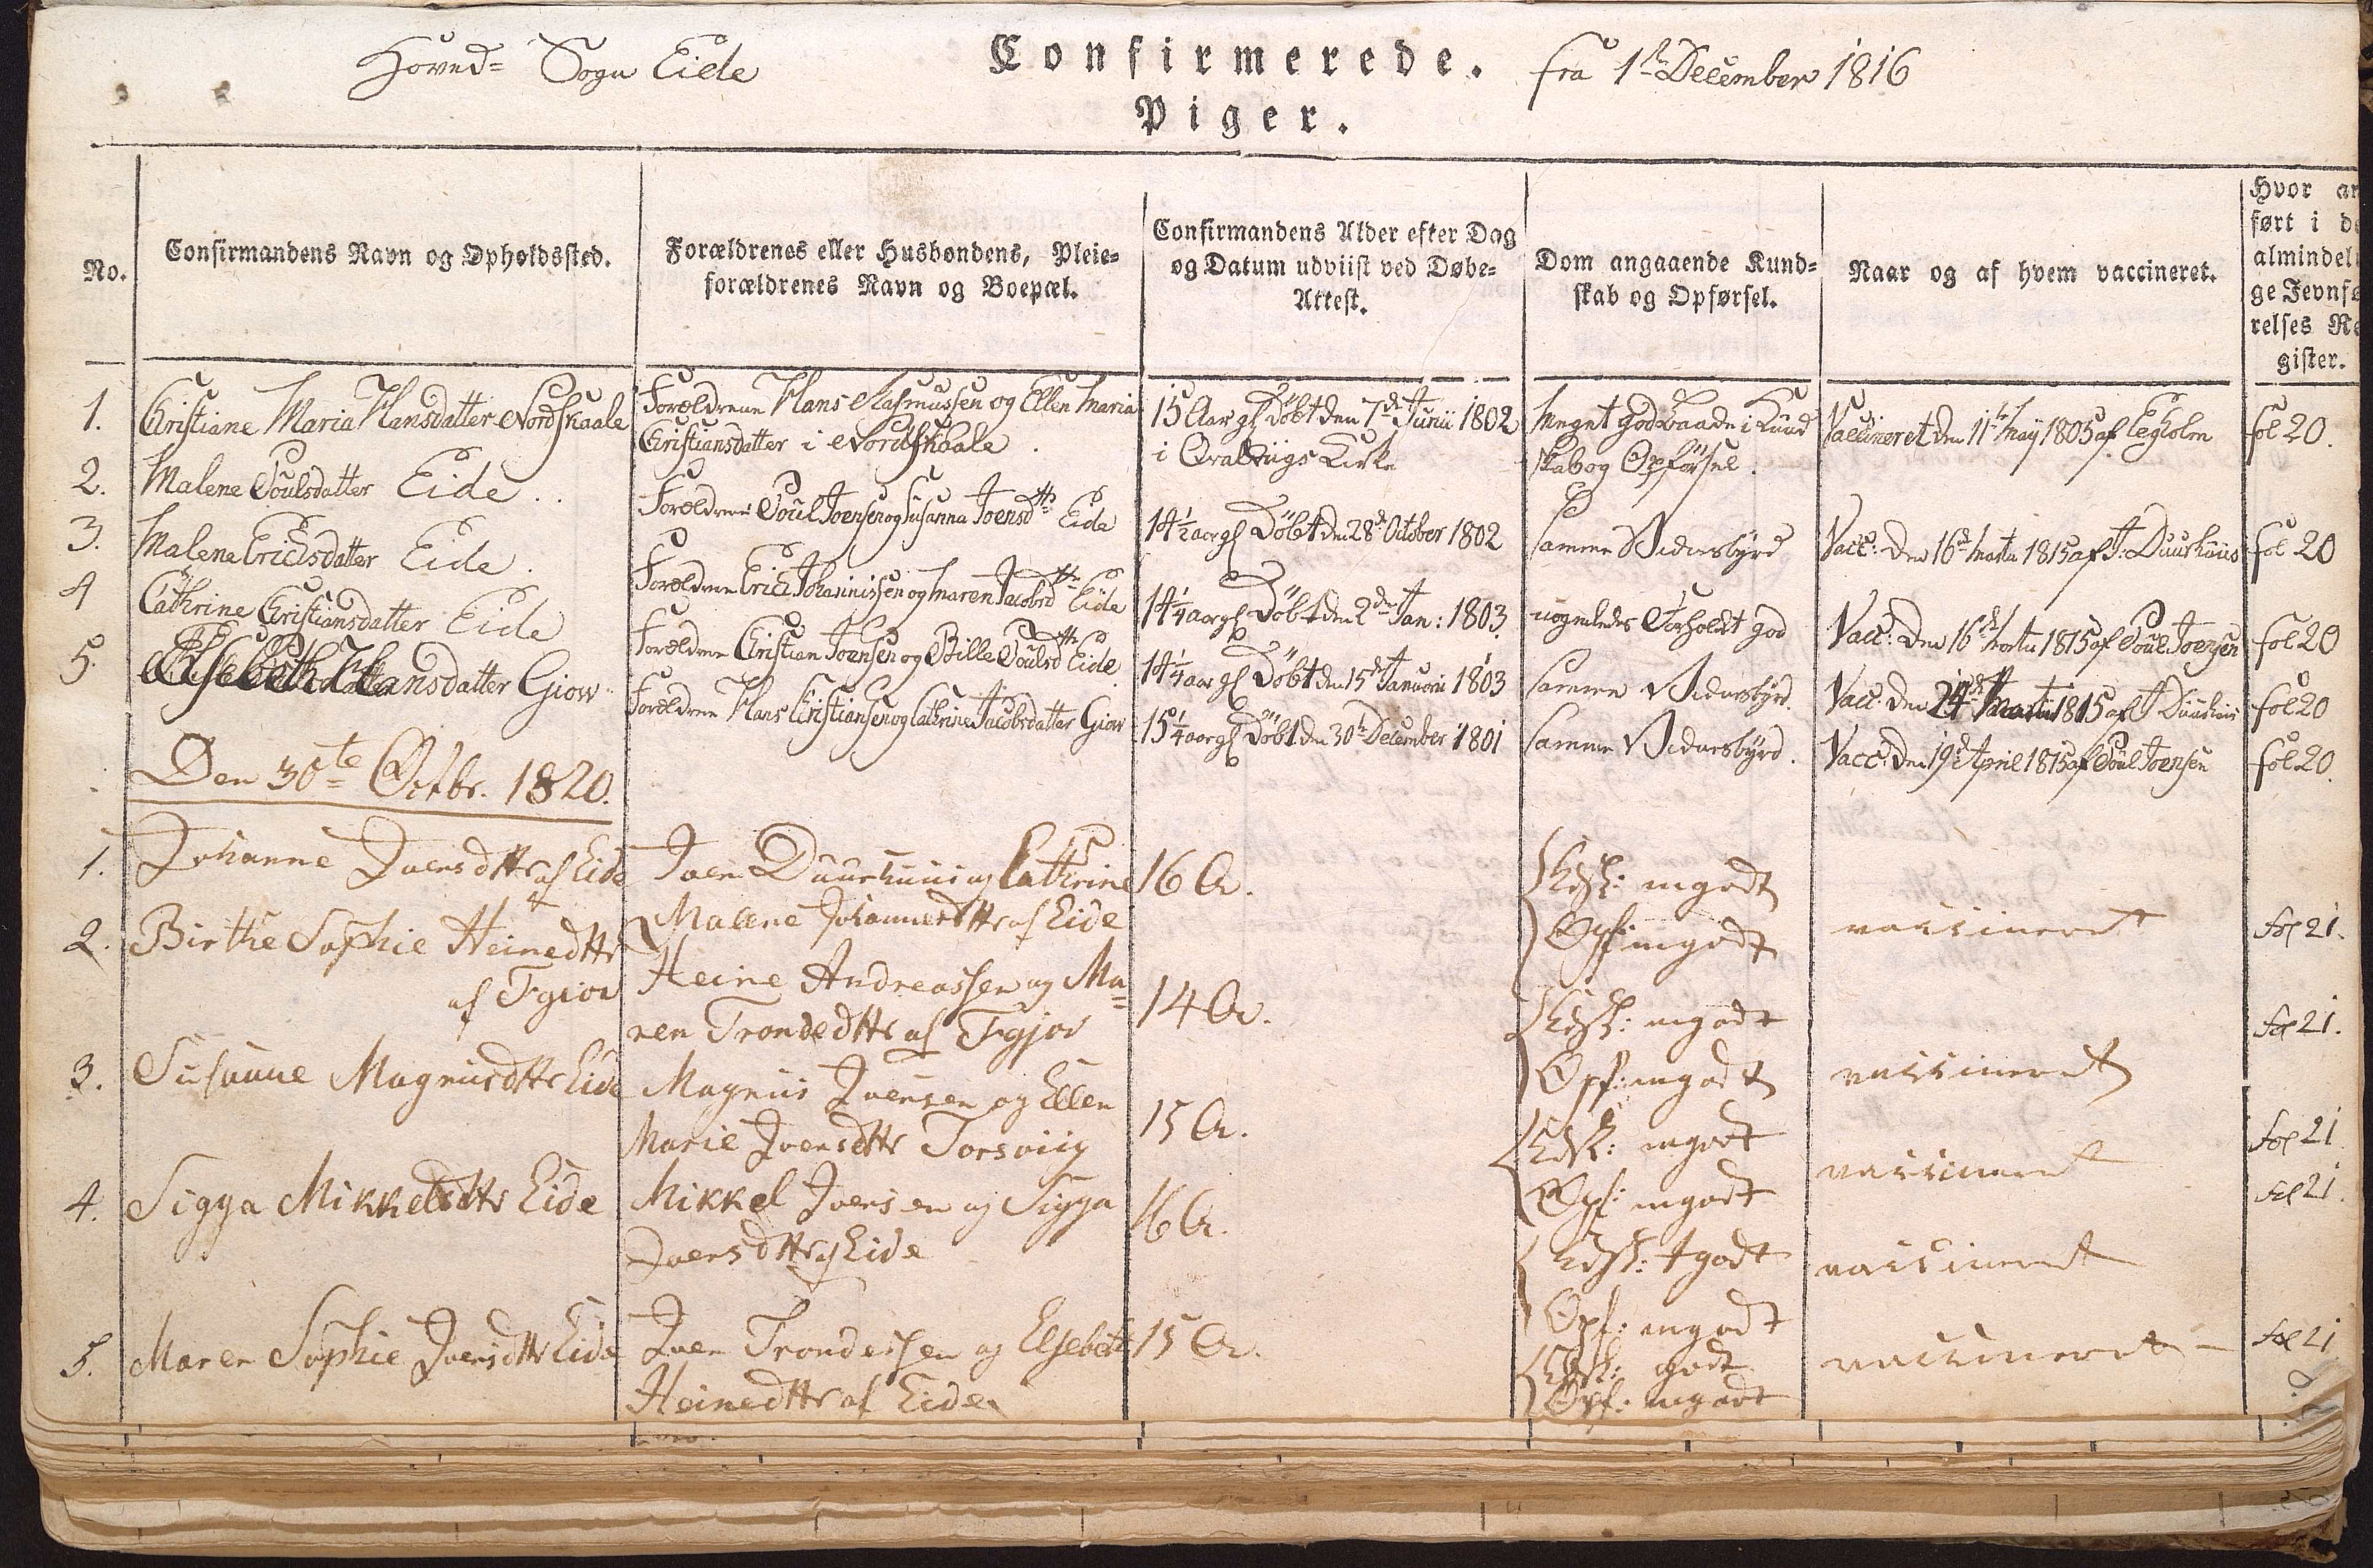 Hoved= Sogn Eide
Confirmerede. fra 1ste December 1816
Piger.
No.
Confirmandens Navn og Opholdssted.
Forældrenes eller Husbondens, Pleie=
forældrenes Navn og Boepæl.
Confirmandens Alder efter Dag
og Datum udviist ved Døbe=
Attest.
Dom angaaende Kund=
skab og Opførsel.
Naar og af hvem vaccineret.
Hvor an
ført i de
almindeli
ge Jevnfø
relses Re
gister.
1. Christiane Maria Hansdatter Nordskaale
Forældrene Hans Rasmussen og Ellen Maria
Christiansdatter i Nordskaale.
15 Aar gl Döbt den 7de Junii 1802
i Qvalviigs Kirke
Meget god baade i Kund
skab og Opförsel.
Vaccineret den 11te Maij 1805 af Egholm
fol 20.
2. Malene Poulsdatter Eide..
Forældrene Poul Joensen og Susanna Joensdtr Eide
14 1/2 aar gl Döbt den 28de October 1802
samme Vidnesbyrd
Vacc: den 16de Martii 1815 af J: Duurhuus
fol 20
3. Malene Erichsdatter Eide.
Forældrene Erich Johannissen og Maren Jacobsdtr Eide
14 1/4 aar gl Döbt den 2den Jan: 1803.
nogenledes Forholdt god
Vacc: den 16de Martii 1815 af Poul Joensen
fol 20
4 Cathrine Christiansdatter Eide
Forældrene Christian Joensen og Bille Poulsdtr Eide.
14 1/4 aar gl Döbt den 15de Januarii 1803
samme Vidnesbyrd.
Vacc. den 24de Martii 1815 af J Duurhuus
fol 20
5. Elsebeth Hansdatter Giow
Forældrene Hans Christiansen og Cathrine Jacobsdatter Giow
15 1/4 aar gl Döbt den 30te December 1801
samme Vidnesbyrd.
Vacc: den 19de April 1815 af Poul Joensen
fol 20.
Den 30te Octbr. 1820.
1. Johanne Joensdttr af Eide
Joen Duurhuus og Cathrine
Malene Johannesdttr af Eide
16 A.
Kdsk: mgodt
Opf: mgodt
vaccineret
fol 21.
2. Birthe Sophie Heinedttr
af Fgiov
Heine Andreassen og Ma=
ren Trondedttr af Fgjov
14 A.
Kdsk: mgodt
Opf: mgodt
vaccineret
fol 21.
3. Susanne Magnusdttr Eide
Magnus Joensen og Ellen
Marie Joensdttr Torsviig
15 A.
Kdsk: mgodt
Opf: mgodt
vaccineret
fol 21
4. Sigga Mikkelsdttr Eide
Mikkel Joensen og Sigga
Joensdttr af Eide
16 A.
Kdsk: tgodt
Opf: mgodt
vaccineret
fol 21.
5. Maren Sophie Joensdttr Eide
Joen Trondessen og Elsebet
Heinedttr af Eide.
15 A.
Kdsk: godt
Opf: mgodt
vaccineret -
fol 21